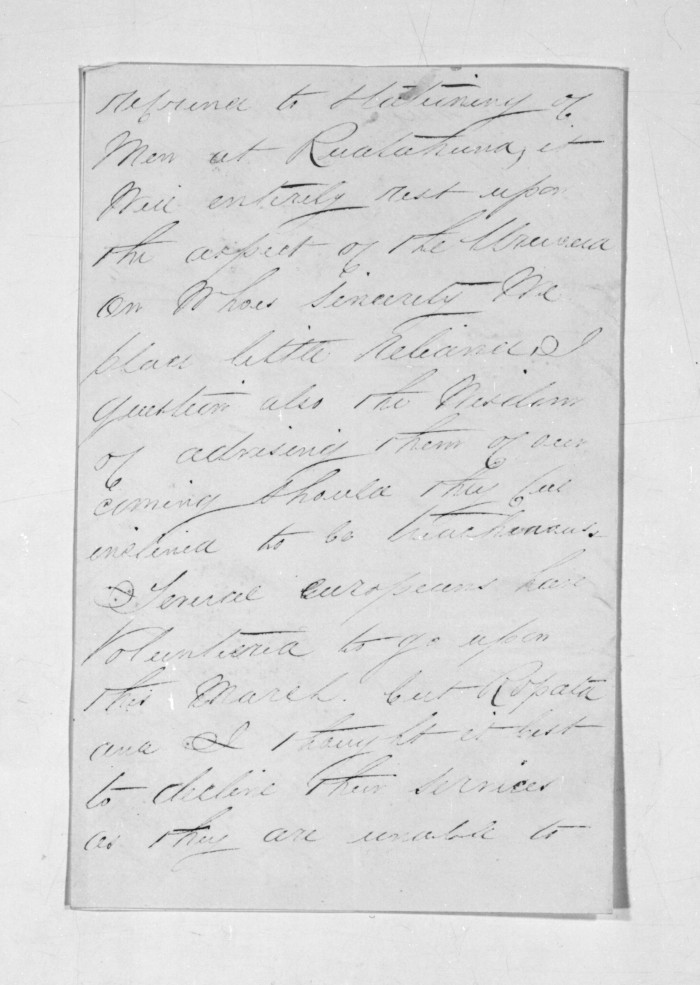 referred to stationing of
Men at Ruatahuna, it
Will entirely rest upon
the aspect of the Urewera
on Whoes Sincerity We
place little Reliance. I
question also the Wisdom
of advising them of our
coming should they be
inclined to be treacherous.
Several europeans have
Volunteered to go upon
this March. but Ropata
and I thought it best
to decline their services
as they are unable to